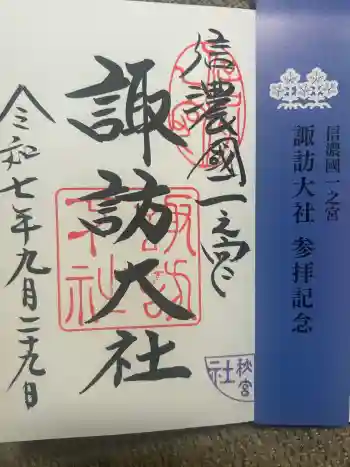 信濃國一之宮
諏訪大社
令和七年九月二十九日
諏訪大社
秋宮
社
信濃國一之宮
諏訪大社 参拝記念